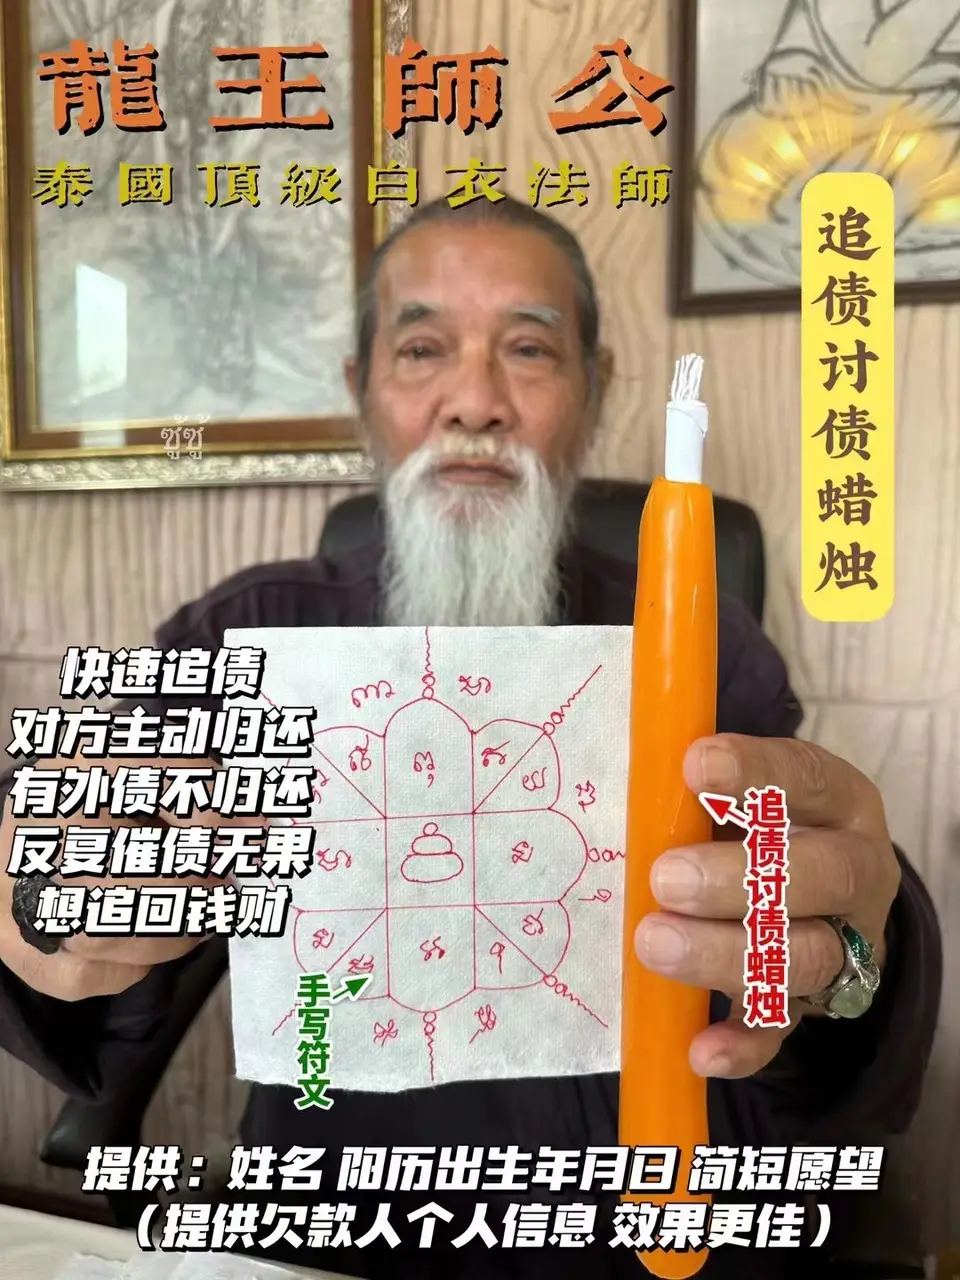 龍王師公
泰國頂級白衣法師
追债讨债蜡烛
ซู้ซู้
快速追债
对方主动归还
有外债不归还
反复催债无果
想追回钱财
追债讨债蜡烛
手写符文
提供：姓名 阳历出生年月日 简短愿望
（提供欠款人个人信息 效果更佳）